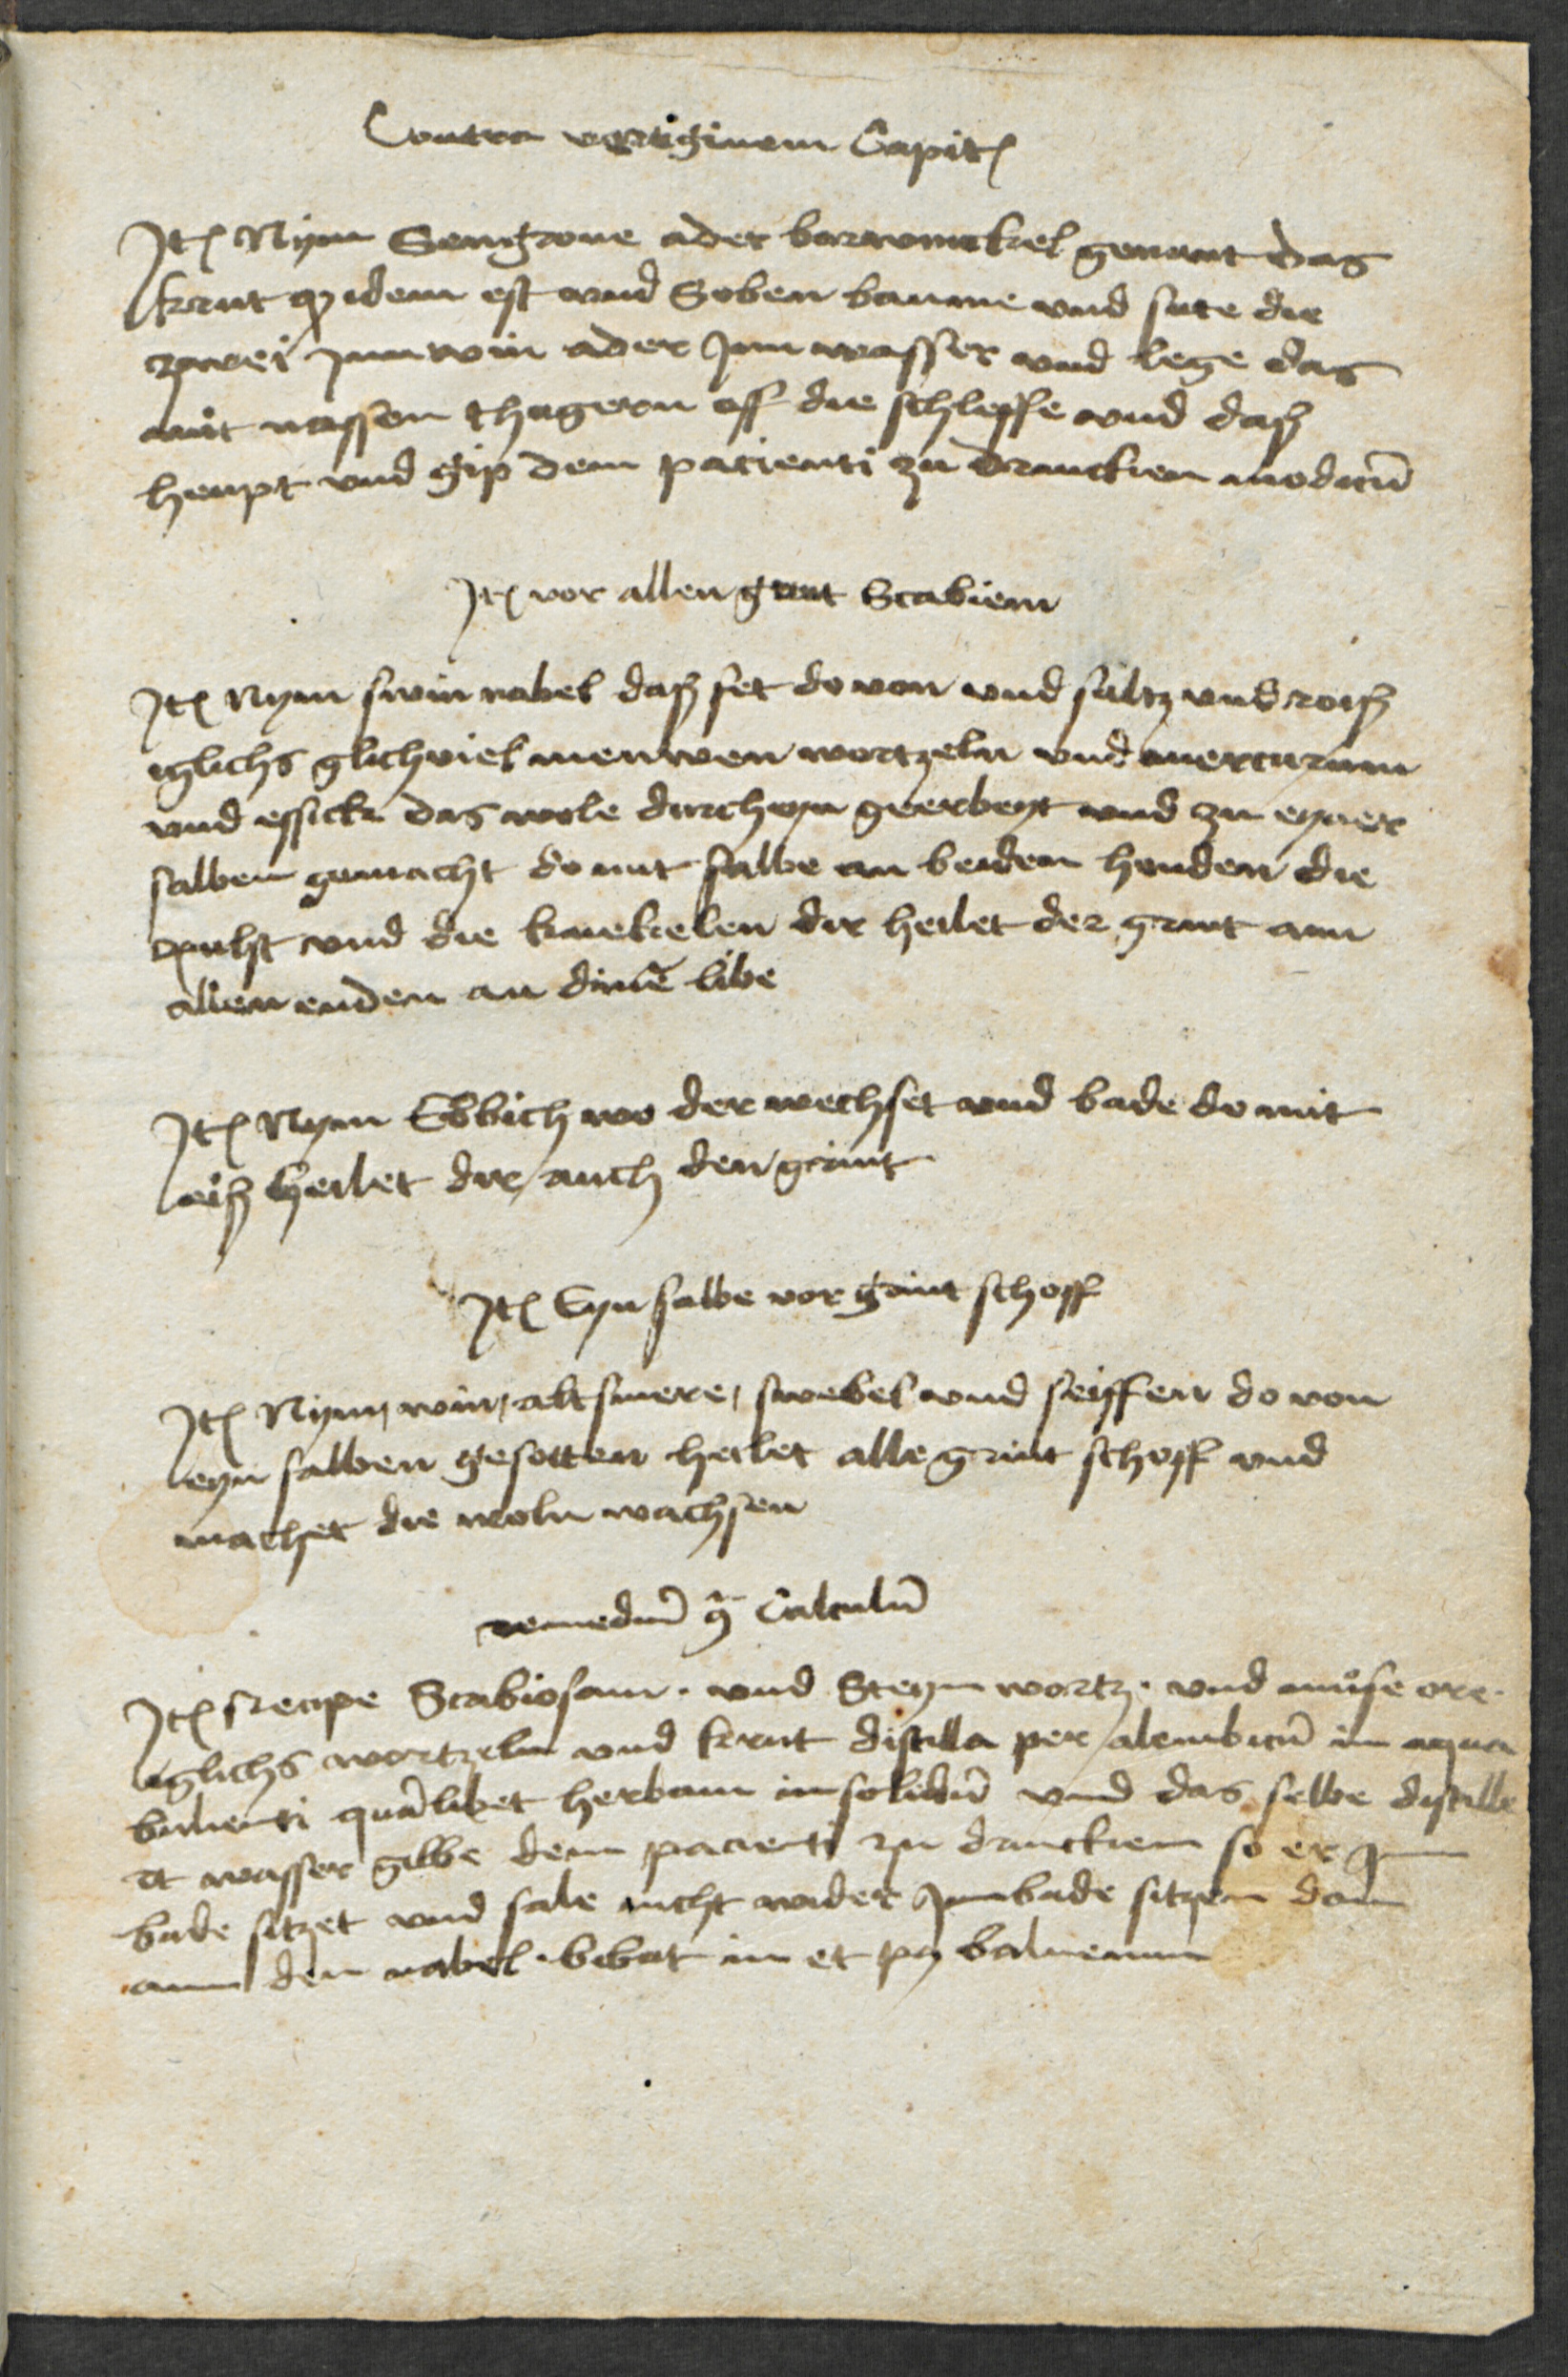 Contra vertiginem Capit(is)
It(em) Nym Sengrone ader barwinckel genant das
krut q(uod) idem est vnd Seben baume vnd sute die
zwei jnn win ader jnn wasser vnd lege das
mit nassen thugern off die schleffe vnd daß
heupt vnd gip dem pacienti zu drancken modicu(m)
It(em) vor allen grint Scabiem
It(em) Nym swin nabel daß fet do von vnd saltz vnd roiß
iglichs glichviel menwen wortzeln vnd mercurium
vnd essick das wole durch eyn geerbeyt vnd zu eyner
salben gemacht do mit salbe an beiden henden die
pulst vnd die knekelen dir heilet der grint ann
allen enden an dine(m) libe
It(em) Nym Ebbich wo der wechset vnd bade do mit
eiß heilet dir auch den grint
It(em) Eyn salbe vor grint schoff
It(em) Nym, win, alt smere, swebel vnd seiffen do von
eyn salben gesotten heilet alle grint schoff vnd
machet die woln wachsen
remediu(m) (contra) Calculu(m)
It(em) Recipe Scabiosam. vnd Steynwortz. vnd muse ore.
iglichs wortzeln vnd krut distilla per alembicu(m) in aqua
bulienti qua(m)libet herbam insolidu(m) vnd das selbe distille
rt wasser gebbe dem pacienti zu drancken so er jm
bade sitzet vnd sale nicht wider jnn bade sitzen dan
ann den nabel. bibat in et p(ost) balneum